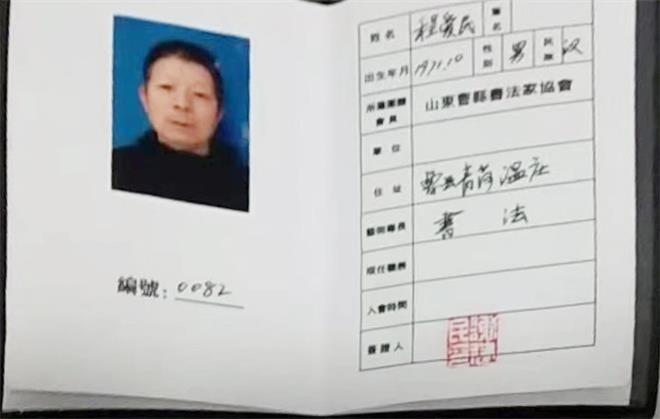 編號：0082
姓名 程爱民 筆名
出生年月 1971.10 性别 男 民族 汉
所屬團體會員 山東曹縣書法家協會
單位
住址 曹县青菏温庄
藝術專長 書法
現任職務
入會時間
簽證人